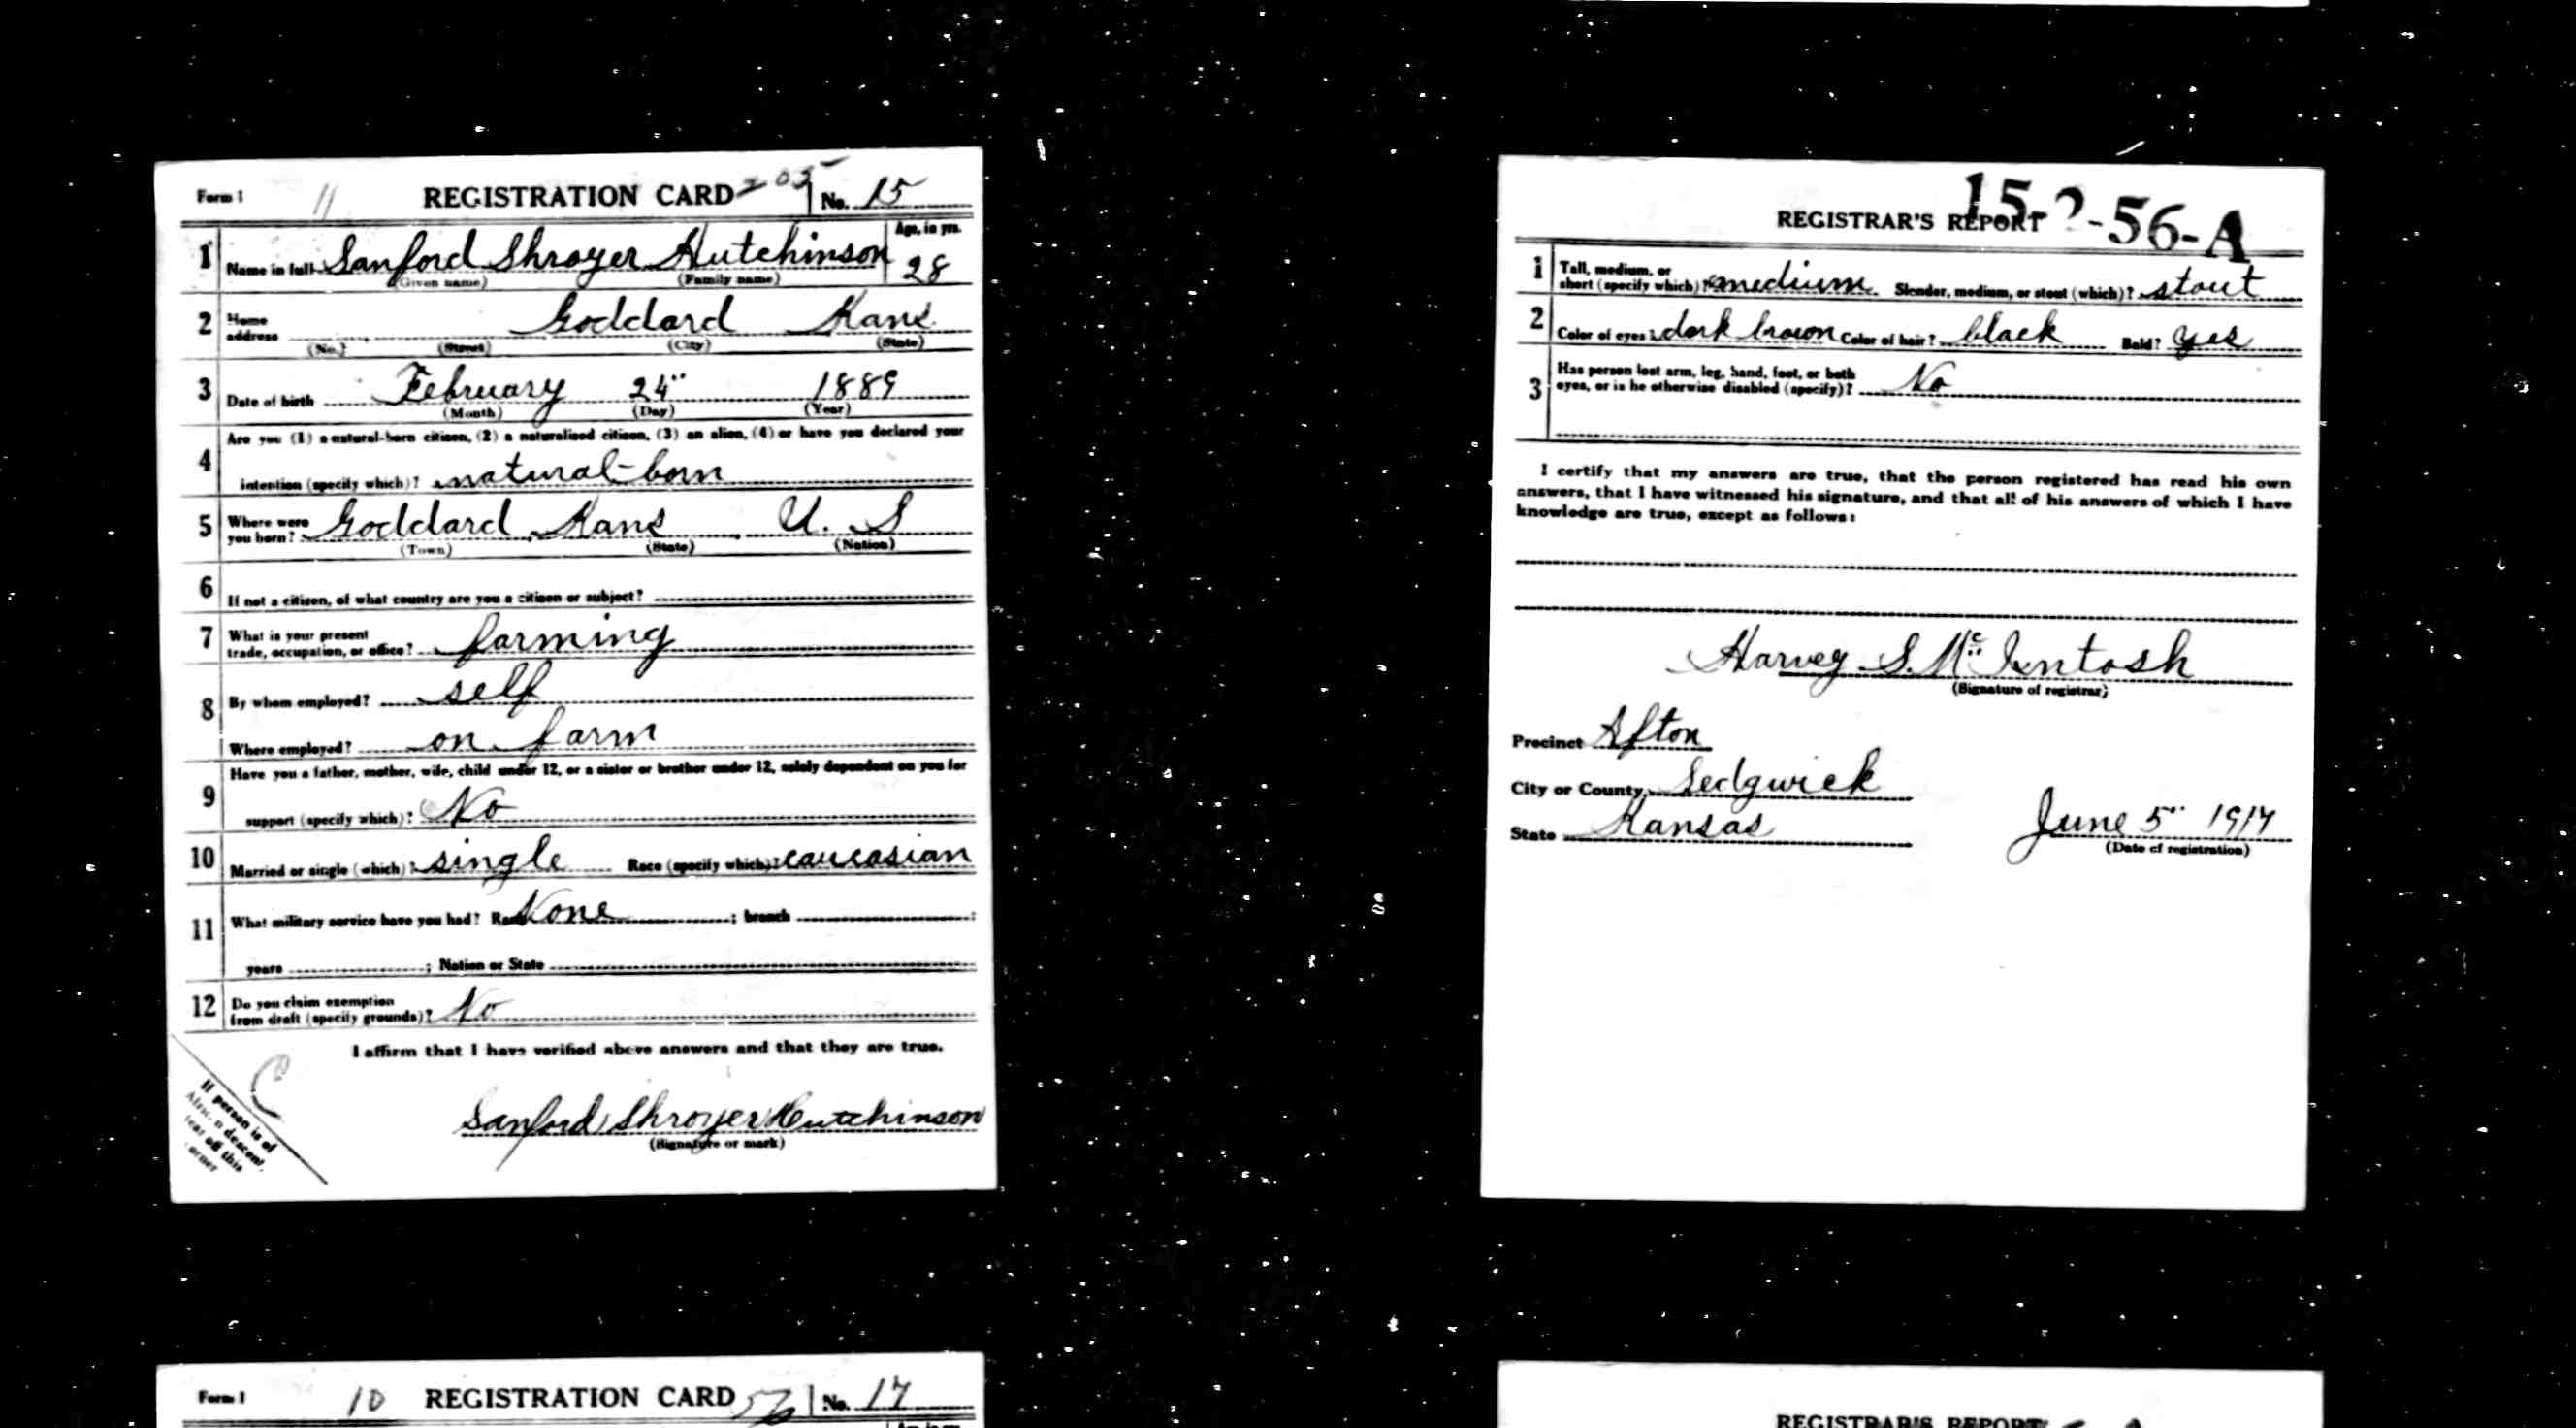 Form 1 11 REGISTRATION CARD 205 No. 15
1 Name in full Sanford Shroyer Hutchinson Age, in yrs. 28
(Given name) (Family name)
2 Home address Goddard Kans
(No.) (Street) (City) (State)
3 Date of birth February 24" 1889
(Month) (Day) (Year)
4 Are you (1) a natural-born citizen, (2) a naturalized citizen, (3) an alien, (4) or have you declared your
intention (specify which)? natural-born
5 Where were you born? Goddard Kans U. S
(Town) (State) (Nation)
6 If not a citizen, of what country are you a citizen or subject?
7 What is your present trade, occupation, or office? farming
8 By whom employed? self
Where employed? on farm
9 Have you a father, mother, wife, child under 12, or a sister or brother under 12, solely dependent on you for
support (specify which)? No
10 Married or single (which)? single Race (specify which)? caucasian
11 What military service have you had? Rank None ; branch ;
years ; Nation or State
12 Do you claim exemption from draft (specify grounds)? No
I affirm that I have verified above answers and that they are true.
C
Sanford Shroyer Hutchinson
(Signature or mark)
If person is of
African descent,
tear off this
corner
15-2-56-A
REGISTRAR'S REPORT
1 Tall, medium, or short (specify which)? medium Slender, medium, or stout (which)? stout
2 Color of eyes? dark brown Color of hair? black Bald? yes
3 Has person lost arm, leg, hand, foot, or both eyes, or is he otherwise disabled (specify)? No
I certify that my answers are true, that the person registered has read his own
answers, that I have witnessed his signature, and that all of his answers of which I have
knowledge are true, except as follows:
Harvey S. McIntosh
(Signature of registrar)
Precinct Afton
City or County Sedgwick
State Kansas
June 5" 1917
(Date of registration)
Form 1 10 REGISTRATION CARD 56 No. 17
REGISTRAR'S REPORT